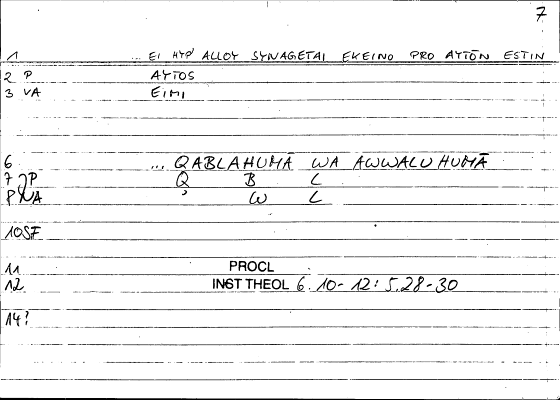 7
1 ... EI HYP' ALLOY SYNAGETAI EKEINO PRO AYTŌN ESTIN
2 P AYTOS
3 VA EIMI
6 ... QABLAHUMĀ WA AWWALU HUMĀ
7 P Q B L
P NA ʾ W L
10 SF
11 PROCL
12 INST THEOL 6.10-12: 5.28-30
14?